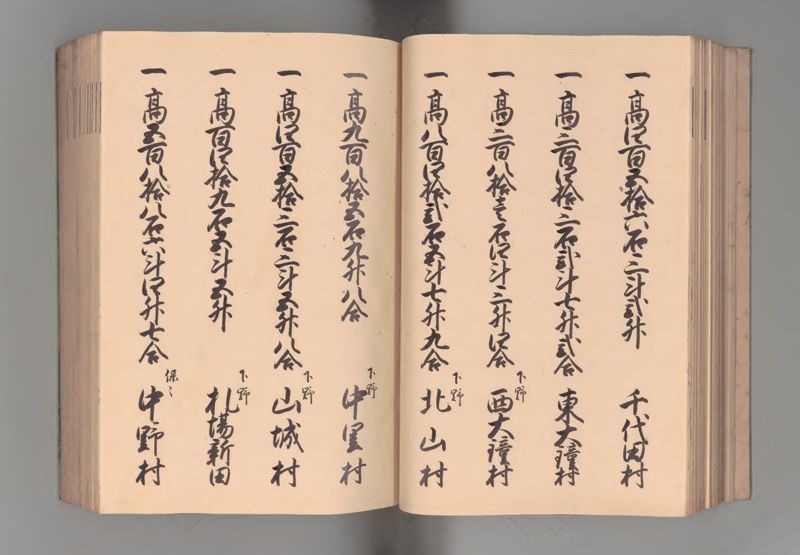 一 高四百五拾六石三斗弐升 千代田村
一 高三百四拾三石弐斗七升弐合 東大𤭖村
一 高三百八拾壱石四斗三升四合 下野 西大𤭖村
一 高八百四拾弐石五斗七升九合 下野 北山村
一 高九百八拾五石九升八合 下野 中里村
一 高四百五拾三石三斗五升八合 下野 山城村
一 高百四拾九石五斗五升 下野 札場新田
一 高五百八拾八石六斗四升七合 保〻 中野村